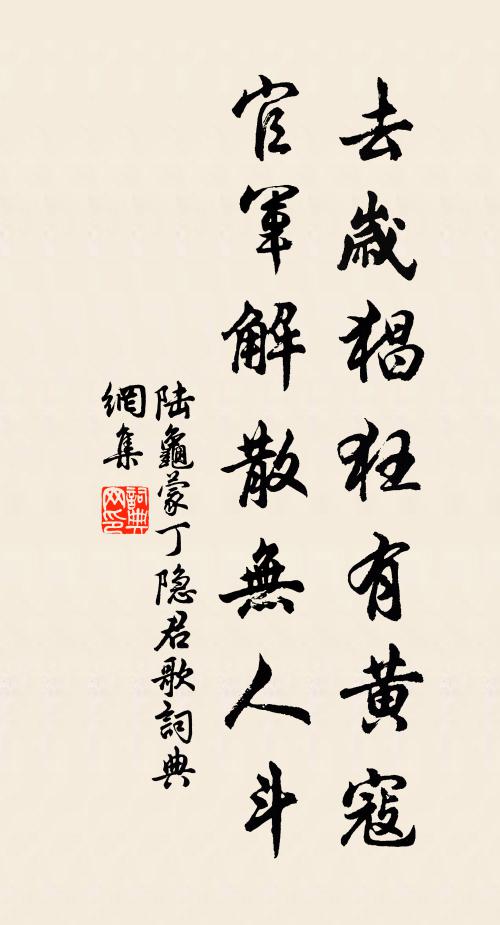 去歲猖狂有黃寇
官軍解散無人斗
陆龜蒙丁隐君歌詞典
網集
詞典网印